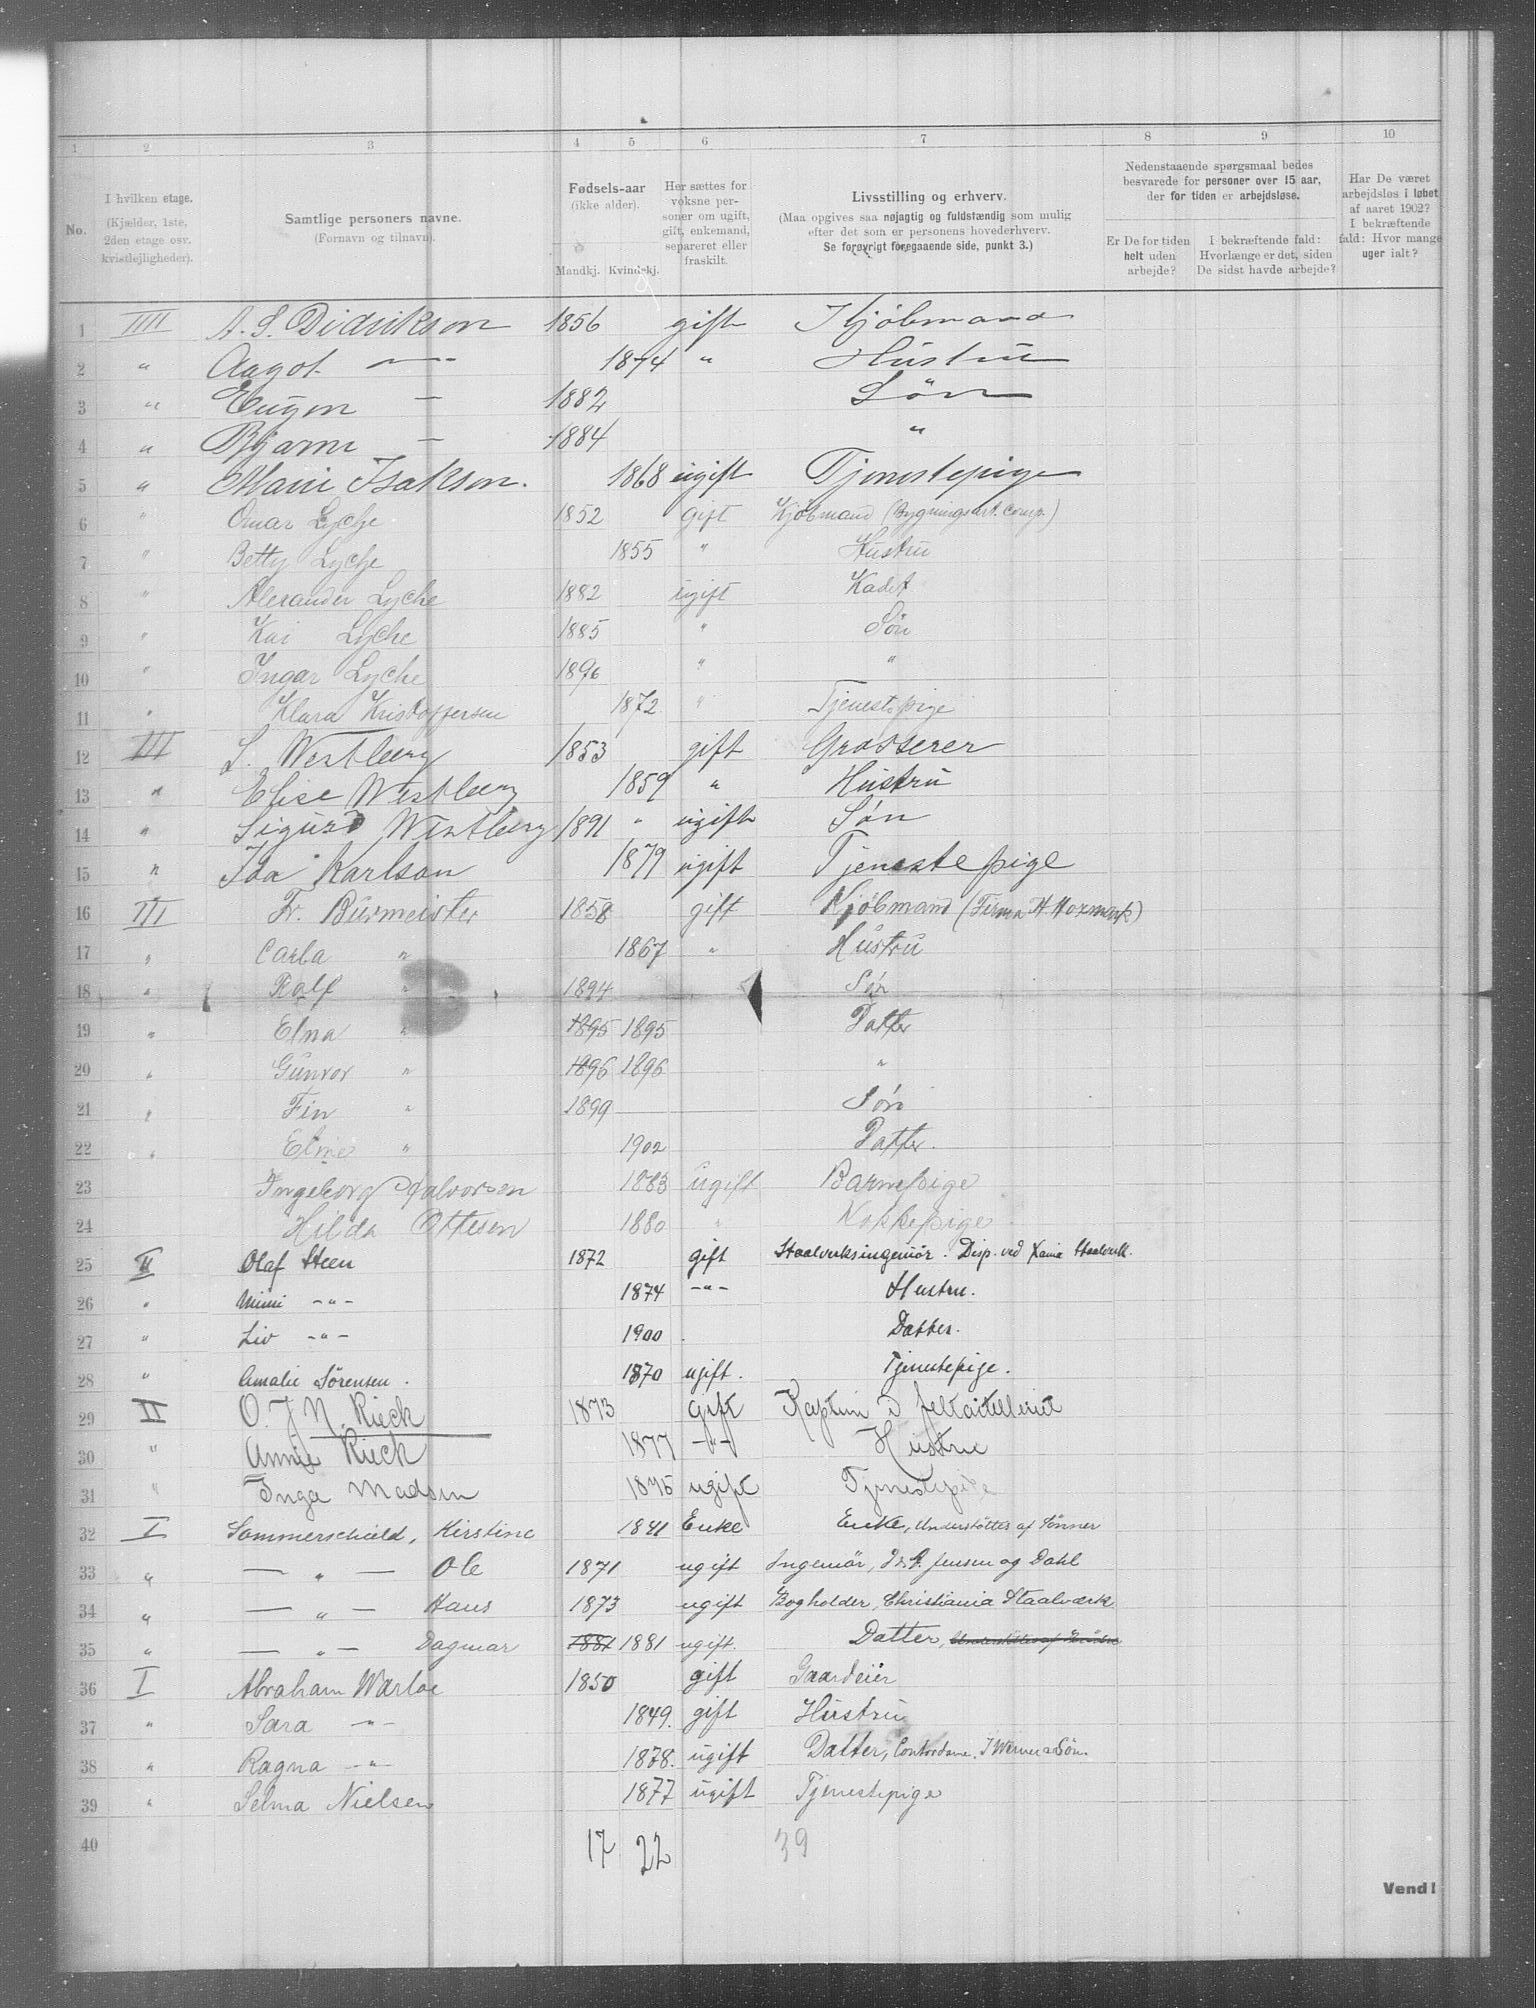 1 2 3 4 5 6 7 8 9 10
No.
I hvilken etage. (Kjælder, 1ste, 2den etage osv. kvistlejligheder).
Samtlige personers navne. (Fornavn og tilnavn).
Fødsels-aar (ikke alder). Mandkj. Kvindekj.
Her sættes for voksne personer om ugift, gift, enkemand, separeret eller fraskilt.
Livsstilling og erhverv. (Maa opgives saa nøjagtig og fuldstændig som mulig efter det som er personens hovederhverv. Se forøvrigt foregaaende side, punkt 3.)
Nedenstaaende spørgsmaal bedes besvarede for personer over 15 aar, der for tiden er arbejdsløse.
Er De for tiden helt uden arbejde?
I bekræftende fald: Hvorlænge er det, siden De sidst havde arbejde?
Har De været arbejdsløs i løbet af aaret 1902? I bekræftende fald: Hvor mange uger ialt?
1 IIII A. S. Didrikson 1856 gift Kjøbmand
2 " Aagot — 1874 " Hustru
3 " Eugen — 1882 Søn
4 " Bjarne — 1884 "
5 " Marie Isaksen. 1868 ugift Tjenestepige
6 " Omar Lyche 1852 gift Kjøbmand (Bygningsart. Comp.)
7 " Betty Lyche 1855 " Hustru
8 " Alexander Lyche 1882 ugift Kadet
9 " Kai Lyche 1885 " Søn
10 " Ingar Lyche 1896 " "
11 " Klara Kristoffersen 1872 " Tjenestepige
12 III L. Westberg 1853 gift Grosserer
13 " Elise Westberg 1859 " Hustru
14 " Sigurd Westberg 1891 " ugift Søn
15 " Ida Karlson 1879 ugift Tjenestepige
16 III Fr. Burmeister 1858 gift Kjøbmand (Firma H. Hoxmark)
17 " Carla " 1867 " Hustru
18 " Ralf " 1894 Søn
19 " Elna " 1895 1895 Datter
20 " Gunvor " 1896 1896 "
21 " Fin " 1899 Søn
22 " Eline " 1902 Datter.
23 Ingeborg Halvorsen 1883 ugift Barnepige
24 Hilda Ottesen 1880 " Kokkepige
25 II Olaf Steen 1872 gift Staalverksingeniör. Disp. ved Xania Staalverk.
26 " Mimi -"- 1874 -"- Hustru.
27 " Liv -"- 1900 Datter.
28 " Amalie Sörensen. 1870 ugift. Tjenestepige.
29 II O. J. N. Rieck 1873 gift Kaptein i feltartilleriet
30 " Annie Rieck 1877 -"- Hustru
31 " Inga Madsen 1875 ugift Tjenestepige
32 I Sommerschield, Kirstine 1841 Enke Enke, Understöttes af Sönner
33 " — " — Ole 1871 ugift Ingeniör, Jensen og Dahl
34 " — " — Hans 1873 ugift Bogholder, Christiania Staalværk
35 " — " — Dagmar 1881 1881 ugift. Datter, Understöttes af Brödre
36 I Abraham Warloe 1850 gift Gaardeier
37 " Sara -"- 1849. gift Hustru
38 " Ragna -"- 1878. ugift Datter, Contordame. J Werner & Søn
39 " Selma Nielsen 1877 ugift Tjenestepige
40 17 22 39
Vend!